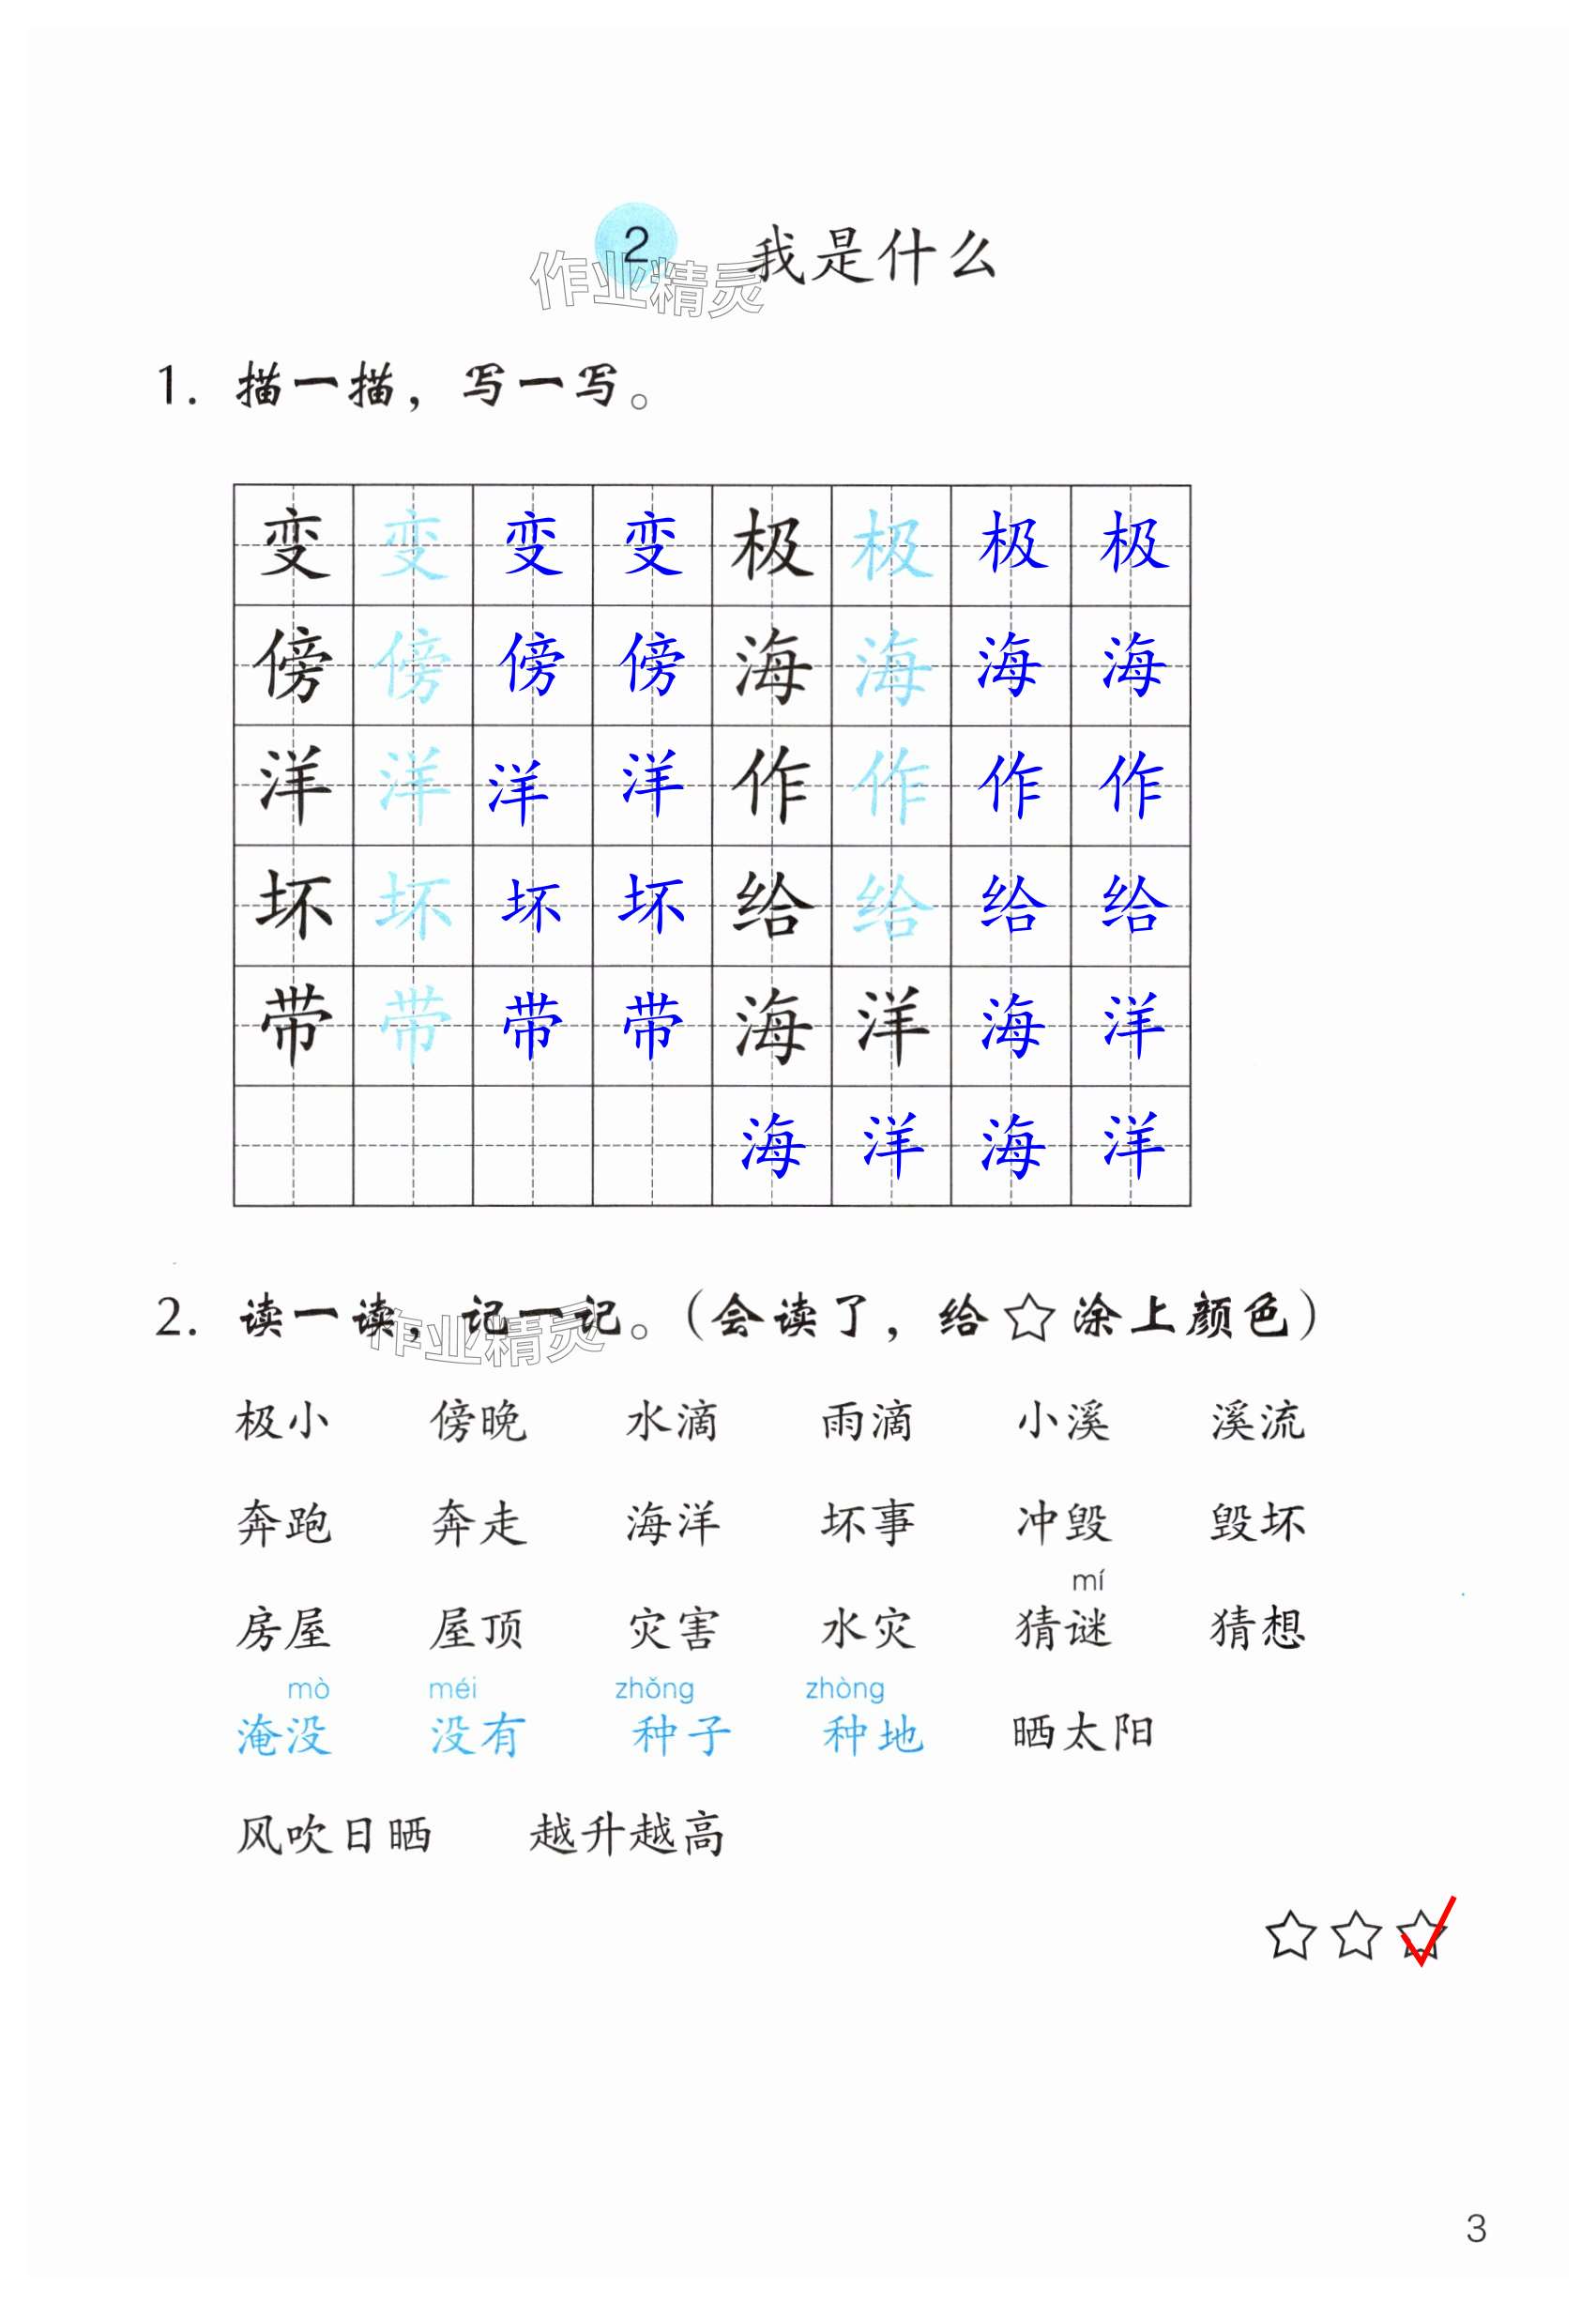 2 我是什么
作业精灵
1. 描一描，写一写。
变 变 变 变 极 极 极 极
傍 傍 傍 傍 海 海 海 海
洋 洋 洋 洋 作 作 作 作
坏 坏 坏 坏 给 给 给 给
带 带 带 带 海 洋 海 洋
海 洋 海 洋
2. 读一读，记一记。（会读了，给☆涂上颜色）
作业精灵
极小 傍晚 水滴 雨滴 小溪 溪流
奔跑 奔走 海洋 坏事 冲毁 毁坏
mí
房屋 屋顶 灾害 水灾 猜谜 猜想
mò méi zhǒng zhòng
淹没 没有 种子 种地 晒太阳
风吹日晒 越升越高
☆☆☆
3